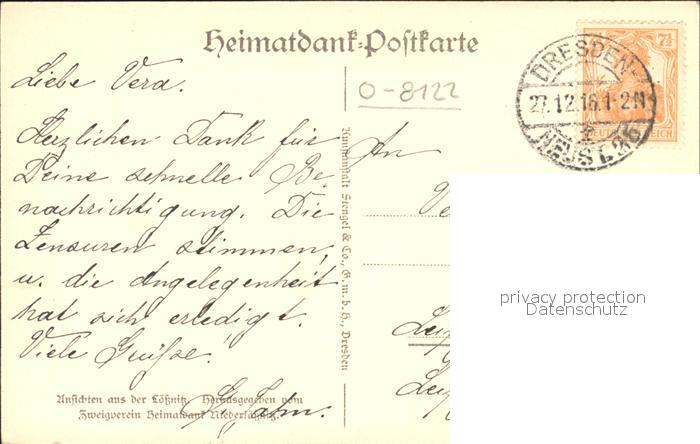 Heimatdank-Postkarte
O-8122
7½
DRESDEN-
27.12.16.1-2N
NEUST.
DEUTSCHES REICH
Liebe Vera.
Herzlichen Dank für
Deine schnelle Be-
nachrichtigung. Die
Zensuren stimmen,
u. die Angelegenheit
hat sich erledigt.
Viele Grüße!
Kunstanstalt Stengel & Co., G.m.b.H., Dresden
An
privacy protection
Datenschutz
Ansichten aus der Lößnitz. Herausgegeben vom
Zweigverein Heimatdank Niederlößnitz.